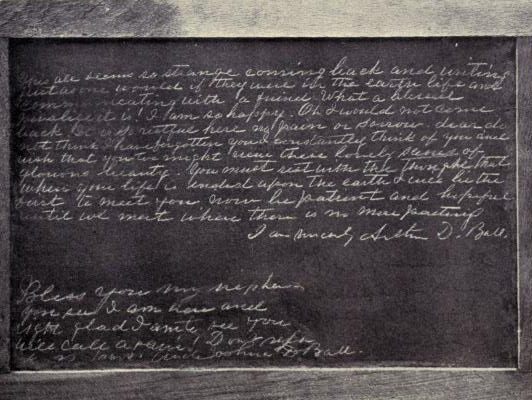 This all seems so strange coming back and writing
just as one would if they were in the earth life and
communicating with a friend. What a blessed
privilege it is! I am so happy. Oh I would not come
back. It is so restful here no pain or sorrow. dear do
not think I have forgotten you I constantly think of you and
wish that you too might view these lovely scenes of
glorious beauty. You must rest with the thought that
when your life is ended upon the earth I will be the
first to meet you now be patient and hopeful
until we meet where there is no more parting
I am sincerely Arthur D. Ball.
Bless you my nephew
you see I am here and
right glad I am to see you
will call again! Don
Uncle Joshua Ball.